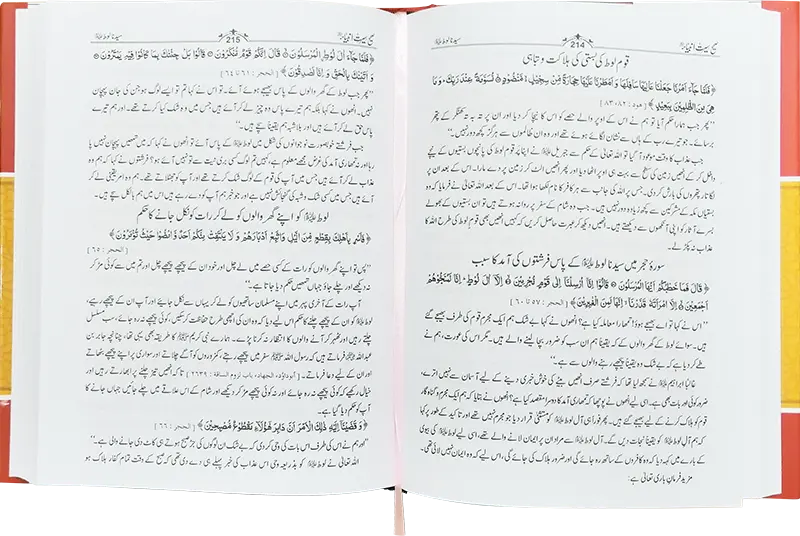 سیدنا لوط علیہ السلام 214 صحیح سیرت انبیاء
قوم لوط کی بستی کی ہلاکت و تباہی
﴿ فَلَمَّا جَآءَ اَمْرُنَا جَعَلْنَا عَالِيَهَا سَافِلَهَا وَ اَمْطَرْنَا عَلَيْهَا حِجَارَةً مِّنْ سِجِّيْلٍ مَّنْضُوْدٍ مُّسَوَّمَةً عِنْدَ رَبِّكَ ، وَمَا
هِيَ مِنَ الظّٰلِمِيْنَ بِبَعِيْدٍ ﴾ [ هود : ٨٢، ٨٣ ]
”پھر جب ہمارا حکم آیا تو ہم نے اس کے اوپر والے حصے کو اس کا نیچا کر دیا اور ان پر تہ بہ تہ کھنگر کے پتھر
برسائے۔ جو تیرے رب کے ہاں سے نشان لگائے ہوئے تھے اور وہ ان ظالموں سے ہرگز کچھ دور نہیں۔“
جب عذاب کا وقت موعود آ گیا تو اللہ تعالیٰ کے حکم سے جبریل علیہ السلام نے اپنا پر قوم لوط کی پانچوں بستیوں کے نیچے
داخل کر کے انھیں زمین کی سطح سے بہت ہی اوپر اٹھا دیا اور پھر انھیں الٹ کر زمین پر دے مارا۔ اس کے بعد ان پر
لگاتار پتھروں کی بارش کر دی۔ جس پر اللہ کی جانب سے ہر کافر کا نام لکھا ہوا تھا۔ اس کے بعد اللہ تعالیٰ نے فرمایا کہ وہ
بستیاں مکہ کے مشرکین سے کچھ زیادہ دور نہیں ہیں۔ جب وہ شام کے سفر پر روانہ ہوتے ہیں تو ان بستیوں کے بچے
آثار کو اپنی آنکھوں سے دیکھتے ہیں۔ انھیں دیکھ کر عبرت حاصل کریں کہ کہیں انھیں بھی قوم لوط کی طرح اللہ کا
عذاب نہ پکڑ لے۔
سورۂ حجر میں سیدنا لوط علیہ السلام کے پاس فرشتوں کی آمد کا سبب
﴿ قَالَ فَمَا خَطْبُكُمْ اَيُّهَا الْمُرْسَلُوْنَ قَالُوْٓا اِنَّآ اُرْسِلْنَآ اِلٰى قَوْمٍ مُّجْرِمِيْنَ اِلَّآ اٰلَ لُوْطٍ اِنَّا لَمُنَجُّوْهُمْ
اَجْمَعِيْنَ اِلَّا امْرَاَتَهٗ قَدَّرْنَآ اِنَّهَا لَمِنَ الْغٰبِرِيْنَ ﴾ [ الحجر : ٥٧ تا ٦٠ ]
”اس نے کہا تو اے بھیجے ہوؤ! تمھارا معاملہ کیا ہے؟ انھوں نے کہا بے شک ہم ایک مجرم قوم کی طرف بھیجے گئے
ہیں۔ سوائے لوط کے گھر والوں کے کہ یقیناً ہم ان سب کو ضرور بچا لینے والے ہیں۔ مگر اس کی عورت، ہم نے
طے کر دیا ہے کہ بے شک وہ یقیناً پیچھے رہنے والوں سے ہے۔“
غالباً ابراہیم علیہ السلام نے سمجھ لیا تھا کہ فرشتے صرف انھیں بیٹے کی خوش خبری دینے کے لیے آسمان سے نہیں اترے،
ضرور کوئی اور بات بھی ہے۔ اسی لیے انھوں نے پوچھا کہ تمھاری آمد کا دوسرا مقصد کیا ہے؟ انھوں نے بتایا کہ ہم ایک مجرم و گناہ گار
قوم کو ہلاک کرنے کے لیے بھیجے گئے ہیں۔ پھر فوراً ہی آل لوط علیہ السلام کو مستثنیٰ قرار دیا جو مجرم نہیں تھے اور تاکید کے طور پر کہا
کہ ہم آل لوط کو یقیناً نجات دیں گے۔ آل لوط علیہ السلام سے مراد ان پر ایمان لانے والے تھے، اسی لیے لوط علیہ السلام کی بیوی
کے بارے میں کہہ دیا کہ وہ کافروں کے ساتھ رہ جائے گی اور ضرور ہلاک کی جائے گی، اس لیے کہ وہ ایمان نہیں لائی تھی۔
مزید فرمان باری تعالیٰ ہے:
سیدنا لوط علیہ السلام 215 صحیح سیرت انبیاء
﴿ فَلَمَّا جَآءَ اٰلَ لُوْطِ الْمُرْسَلُوْنَ قَالَ اِنَّكُمْ قَوْمٌ مُّنْكَرُوْنَ قَالُوْا بَلْ جِئْنٰكَ بِمَا كَانُوْا فِيْهِ يَمْتَرُوْنَ
وَ اَتَيْنٰكَ بِالْحَقِّ وَ اِنَّا لَصٰدِقُوْنَ ﴾ [ الحجر : ٦١ تا ٦٤ ]
”پھر جب لوط کے گھر والوں کے پاس بھیجے ہوئے آئے۔ تو اس نے کہا تم تو ایسے لوگ ہو جن کی جان پہچان
نہیں۔ انھوں نے کہا بلکہ ہم تیرے پاس وہ چیز لے کر آئے ہیں جس میں وہ شک کیا کرتے تھے۔ اور ہم تیرے
پاس حق لے کر آئے ہیں اور بلاشبہ ہم یقیناً سچے ہیں۔“
جب فرشتے خوبصورت نوجوانوں کی شکل میں لوط علیہ السلام کے پاس آئے تو انھوں نے کہا کہ میں تمھیں پہچان نہیں پا
رہا اور نہ تمھاری آمد کی غرض مجھے معلوم ہے، کہیں تم لوگ کسی بری نیت سے تو نہیں آئے ہو؟ فرشتوں نے کہا کہ ہم وہ
عذاب لے کر آئے ہیں جس میں آپ کی قوم کے لوگ شک کرتے تھے اور آپ کو جھٹلاتے تھے۔ ہم وہ امر یقینی لے کر
آئے ہیں جس میں کسی شک و شبہ کی گنجائش نہیں ہے اور جو خبر ہم آپ کو دے رہے ہیں اس میں ہم بالکل سچے ہیں۔
لوط علیہ السلام کو اپنے گھر والوں کو لے کر رات کو نکل جانے کا حکم
﴿ فَاَسْرِ بِاَهْلِكَ بِقِطْعٍ مِّنَ الَّيْلِ وَاتَّبِعْ اَدْبَارَهُمْ وَ لَا يَلْتَفِتْ مِنْكُمْ اَحَدٌ وَّامْضُوْا حَيْثُ تُؤْمَرُوْنَ ﴾
[ الحجر : ٦٥ ]
”پس تو اپنے گھر والوں کو رات کے کسی حصے میں لے چل اور خود ان کے پیچھے پیچھے چل اور تم میں سے کوئی مڑ کر
نہ دیکھے اور چلے جاؤ جہاں تمھیں حکم دیا جاتا ہے۔“
آپ رات کے آخری پہر میں اپنے مسلمان ساتھیوں کو لے کر یہاں سے نکل جایئے اور آپ ان کے پیچھے رہیے،
لوط علیہ السلام کو ان کے پیچھے چلنے کا حکم اس لیے دیا کہ وہ ان کی اچھی طرح حفاظت کر سکیں، کوئی پیچھے نہ رہ جائے، سب مسلسل
چلتے رہیں اور ٹھہر کر آنے والوں کا انتظار نہ کرنا پڑے۔ ہمارے نبی کریم ﷺ کا طریقہ بھی یہی تھا، چنانچہ جابر بن
عبد اللہ فرماتے ہیں کہ رسول اللہ ﷺ سفر میں پیچھے رہتے، کمزوروں کو آگے چلاتے اور سواری پر اپنے پیچھے بٹھاتے
اور ان کے لیے دعا فرماتے۔ [ أبو داؤد، الجهاد، باب لزوم الساقة : ٢٦٣٩ ] تاکہ انھیں تیز چلنے پر ابھارتے رہیں اور
خیال رکھیے کہ کوئی پیچھے نہ رہ جائے اور نہ کوئی پیچھے مڑ کر دیکھے اور شام کے اس علاقے میں چلے جائیں جہاں جانے کا
آپ کو حکم دیا گیا ہے۔
﴿ وَ قَضَيْنَآ اِلَيْهِ ذٰلِكَ الْاَمْرَ اَنَّ دَابِرَ هٰٓؤُلَآءِ مَقْطُوْعٌ مُّصْبِحِيْنَ ﴾ [ الحجر : ٦٦ ]
”اور ہم نے اس کی طرف اس بات کی وحی کر دی کہ بے شک ان لوگوں کی جڑ صبح ہوتے ہی کاٹ دی جانے والی ہے۔“
اللہ تعالیٰ نے لوط علیہ السلام کو بذریعہ وحی اس عذاب کی خبر پہلے ہی دے دی تھی کہ صبح کے وقت تمام کفار ہلاک ہو